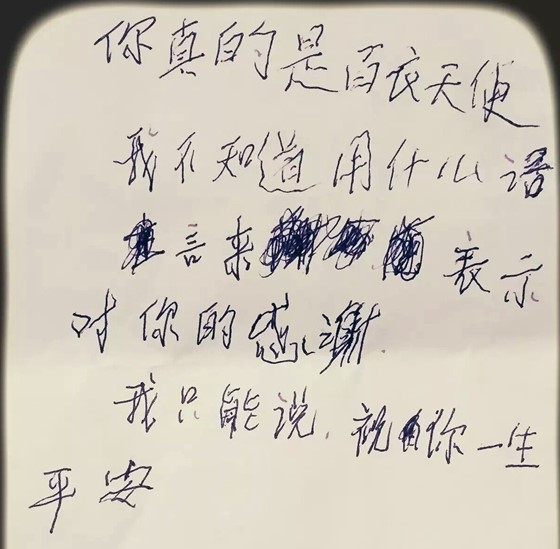 你真的是百衣天使
我不知道用什么语
言来表示
对你的感谢
我只能说.祝你一生
平安